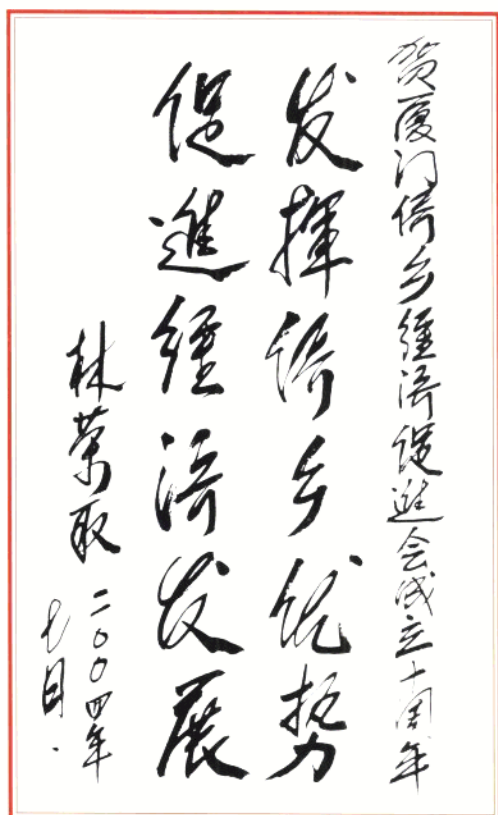 贺厦门侨乡经济促进会成立十周年
发揮侨乡优势
促進經济发展
林荣取
二00四年
七月.